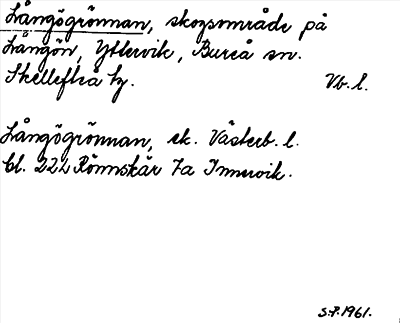 Långögrönnan, skogsområde på
Långön, Yttervik, Bureå sn.
Skellefteå tg. Vb. l.
Långögrönnan, sk. Västerb. l.
bl. 222 Rönnskär 7a Innervik.
S.P. 1961.